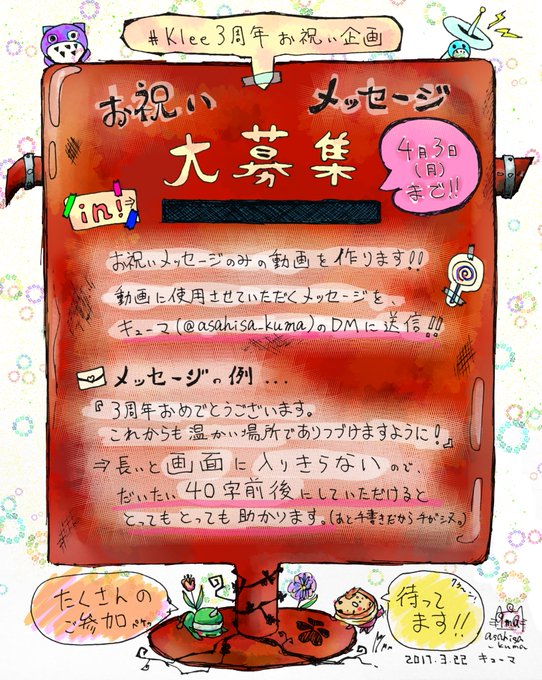 #Klee3周年お祝い企画
お祝い メッセージ
大募集
4月3日
(月)
まで!!
in!⇒
お祝いメッセージのみの動画を作ります!!
動画に使用させていただくメッセージを、
キューマ(@asahisa_kuma)のDMに送信!!
メッセージの例...
『3周年おめでとうございます。
これからも温かい場所でありつづけますように!』
⇒長いと画面に入りきらないので、
だいたい40字前後にしていただけると
とってもとっても助かります。(あと手書きだから手がシヌ。)
たくさんの
ご参加
待って
ます!!
asahisa
_kuma
2017.3.22 キューマ